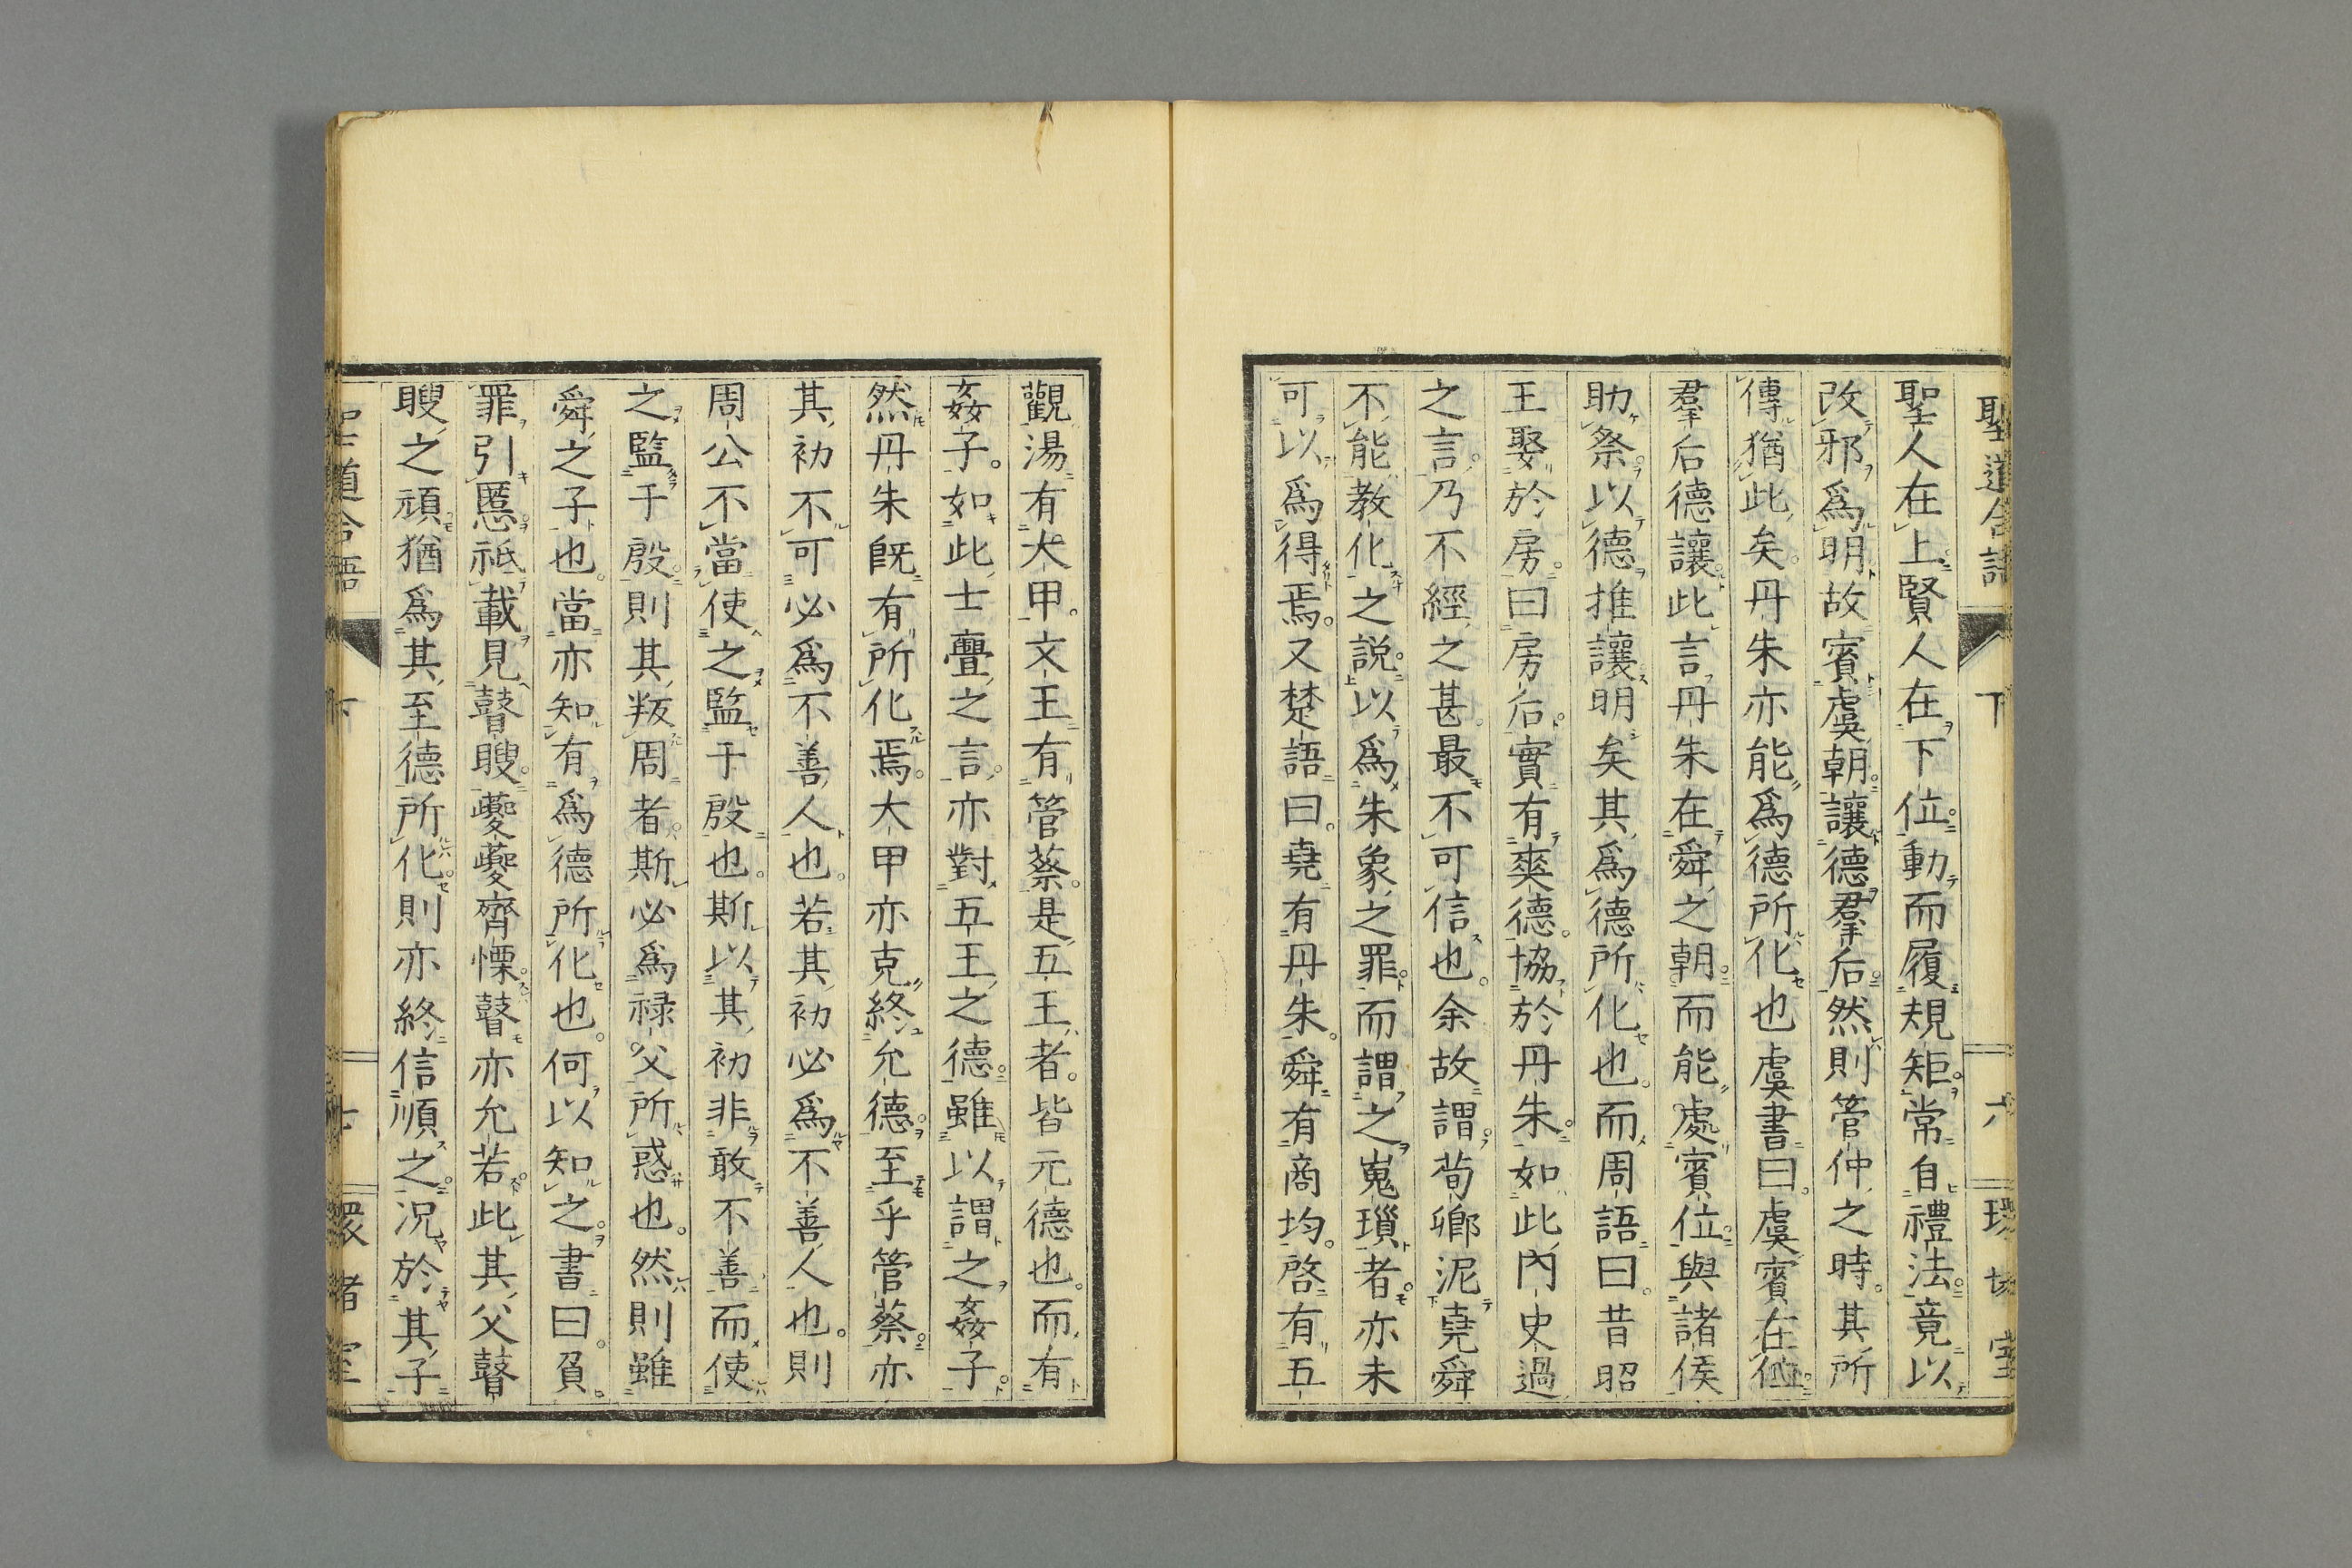 聖道合語 下 六 環堵室
聖人在上賢人在下位動而履規矩常自禮法竟以
改邪爲明故賓虞朝讓德羣后然則管仲之時其所
傳猶此矣丹朱亦能爲德所化也虞書曰虞賓在位
羣后德讓此言丹朱在舜之朝而能處賓位與諸侯
助祭以德推讓明矣其爲德所化也而周語曰昔昭
王娶於房曰房后實有爽德協於丹朱如此內史過
之言乃不經之甚最不可信也余故謂荀鄕泥堯舜
不能教化之説以爲朱象之罪而謂之嵬瑣者亦未
可以爲得焉又楚語曰堯有丹朱舜有商均啓有五
觀湯有大甲文王有管蔡是五王者皆元德也而有
姦子如此士亹之言亦對五王之德雖以謂之姦子
然丹朱既有所化焉大甲亦克終允德至乎管蔡亦
其初不可必爲不善人也若其初必爲不善人也則
周公不當使之監于殷也斯以其初非敢不善而使
之監于殷則其叛周者斯必爲禄父所惑也然則雖
舜之子也當亦知有爲德所化也何以知之書曰負
罪引慝祗載見瞽瞍夔夔齊慄瞽亦允若此其父瞽
瞍之頑猶爲其至德所化則亦終信順之況於其子
聖道合語 下 七 環堵室